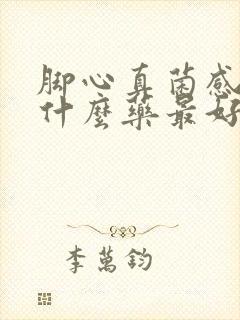 脚心真菌感
什麼藥最好
李萬鈞